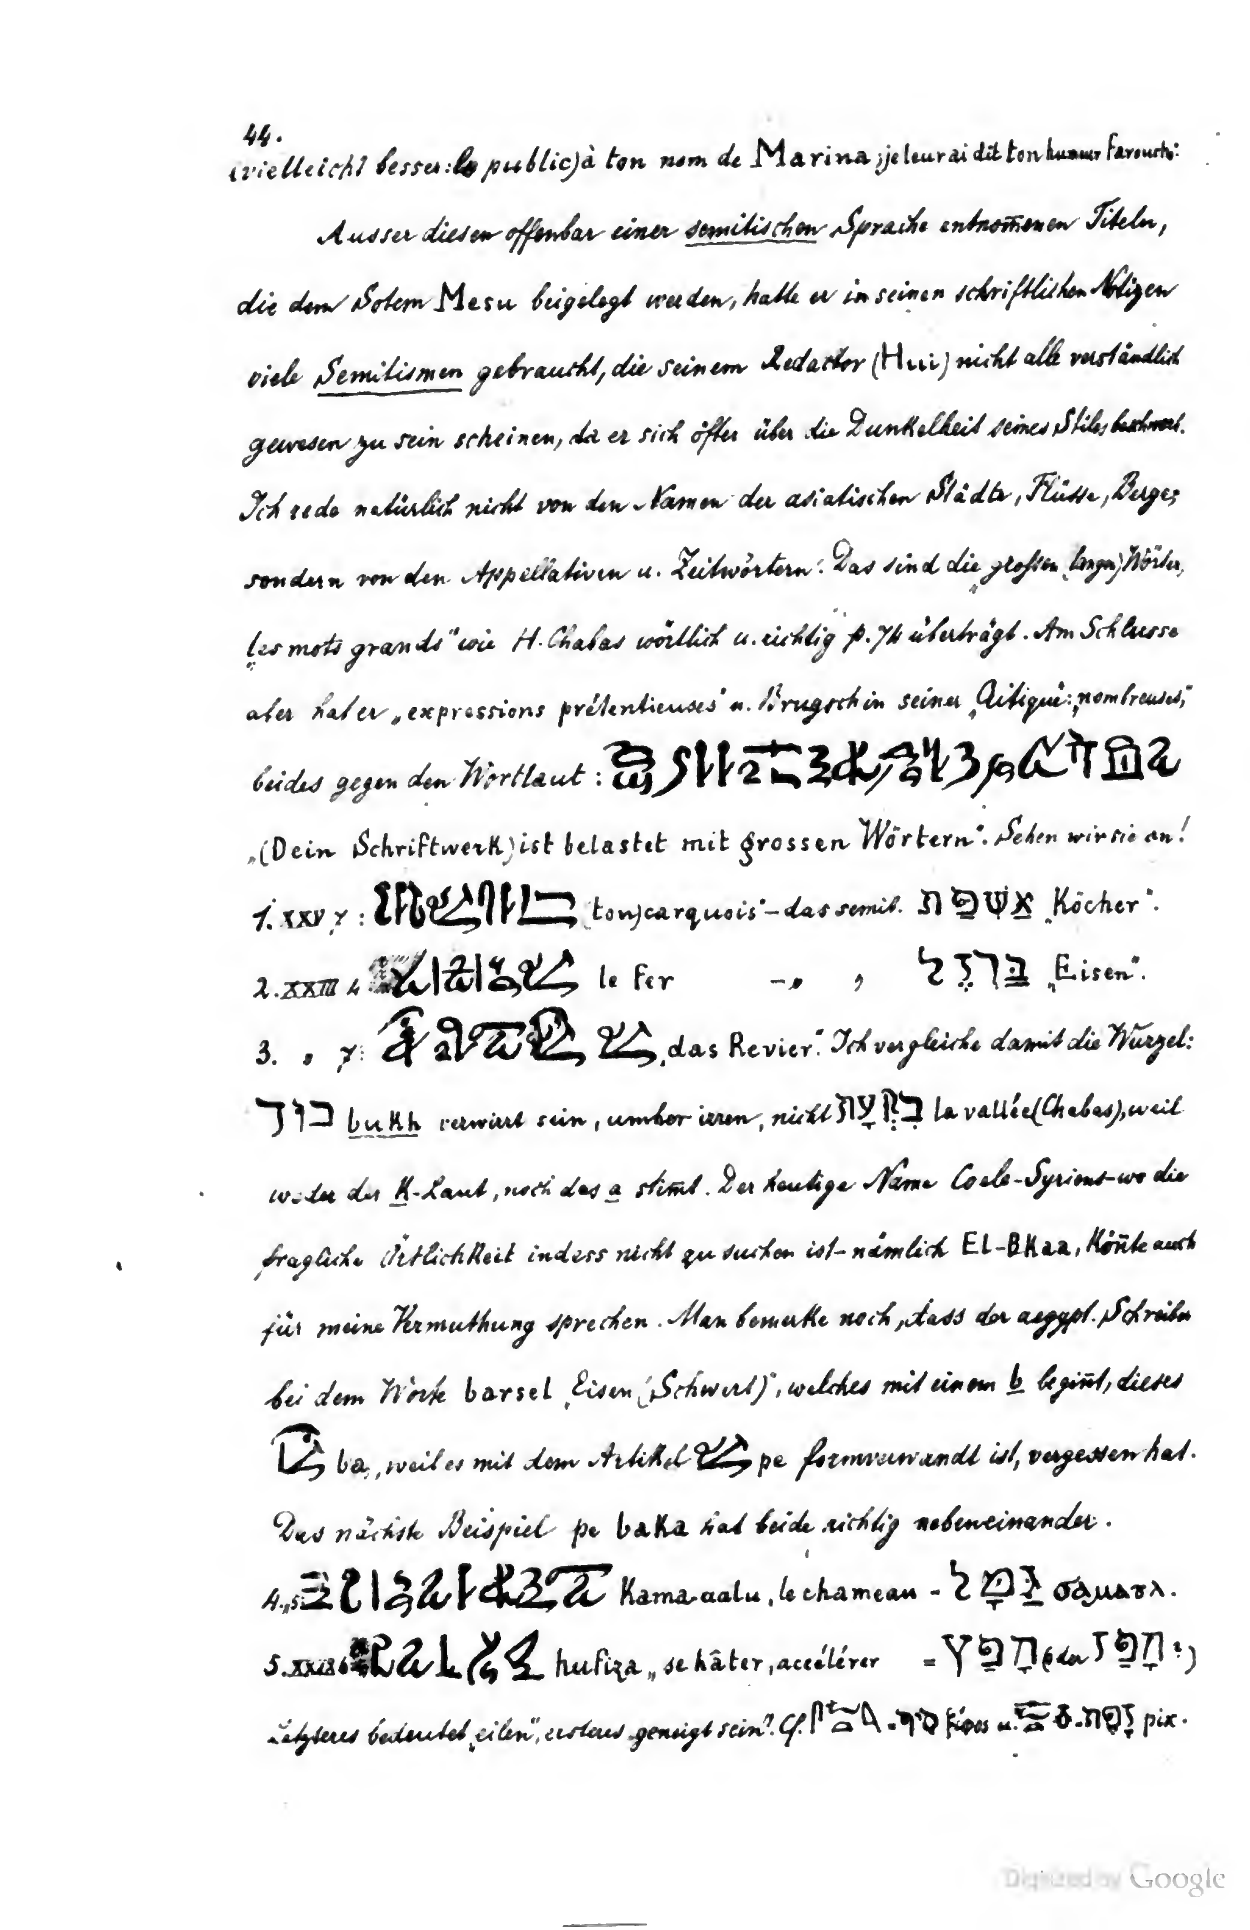 44.
(vielleicht besser: le public) à ton nom de Marina; je leur ai dit ton humeur farouche:
Ausser diesen offenbar einer semitischen Sprache entnom̄enen Titeln,
die dem Sotem Mesu beigelegt werden, hatte er in seinen schriftlichen Notizen
viele Semitismen gebraucht, die seinem Redactor (Hui) nicht alle verständlich
gewesen zu sein scheinen, da er sich öfter über die Dunkelheit seines Stiles beschwert.
Ich rede natürlich nicht von den Namen der asiatischen Städte, Flüsse, Berge;
sondern von den Appellativen u. Zeitwörtern. Das sind die „grossen (langen) Wörter,
„les mots grands" wie H. Chabas wörtlich u. richtig p. 74 überträgt. Am Schlusse
aber hat er „expressions prétentieuses" u. Brugsch in seiner „Critique": „nombreuses",
beides gegen den Wortlaut:
„(Dein Schriftwerk) ist belastet mit grossen Wörtern". Sehen wir sie an!
1. XXV 7: (ton) carquois" – das semit. אַשְׁפַּת „Köcher".
2. XXIII 4 le fer –„ „ בַּרְזֶל „Eisen".
3. „ 7: „das Revier." Ich vergleiche damit die Wurzel:
בוך bukh verwirrt sein, umher irren, nicht בִּקְעָת la vallée (Chabas), weil
weder der K-Laut, noch das a stim̄t. Der heutige Name Coele-Syriens – wo die
fragliche Örtlichkeit indess nicht zu suchen ist – nämlich El-BKaa, Kön̄te auch
für meine Vermuthung sprechen. Man bemerke noch, dass der aegypt. Schreiber
bei dem Worte barsel „Eisen (Schwert)", welches mit einem b begin̄t, dieses
ba, weil es mit dem Artikel pe formverwandt ist, vergessen hat.
Das nächste Beispiel pe baka hat beide richtig nebeneinander.
4. „ 5: Kama-aalu, le chameau – גַּמָּל ϭⲁⲙⲁⲩⲗ.
5. hufiza „se hâter, accélérer = חָפַץ (oder חָפַז?)
Letzteres bedeutet „eilen", ersteres „geneigt sein". Cf. u. זֶפֶת pix.